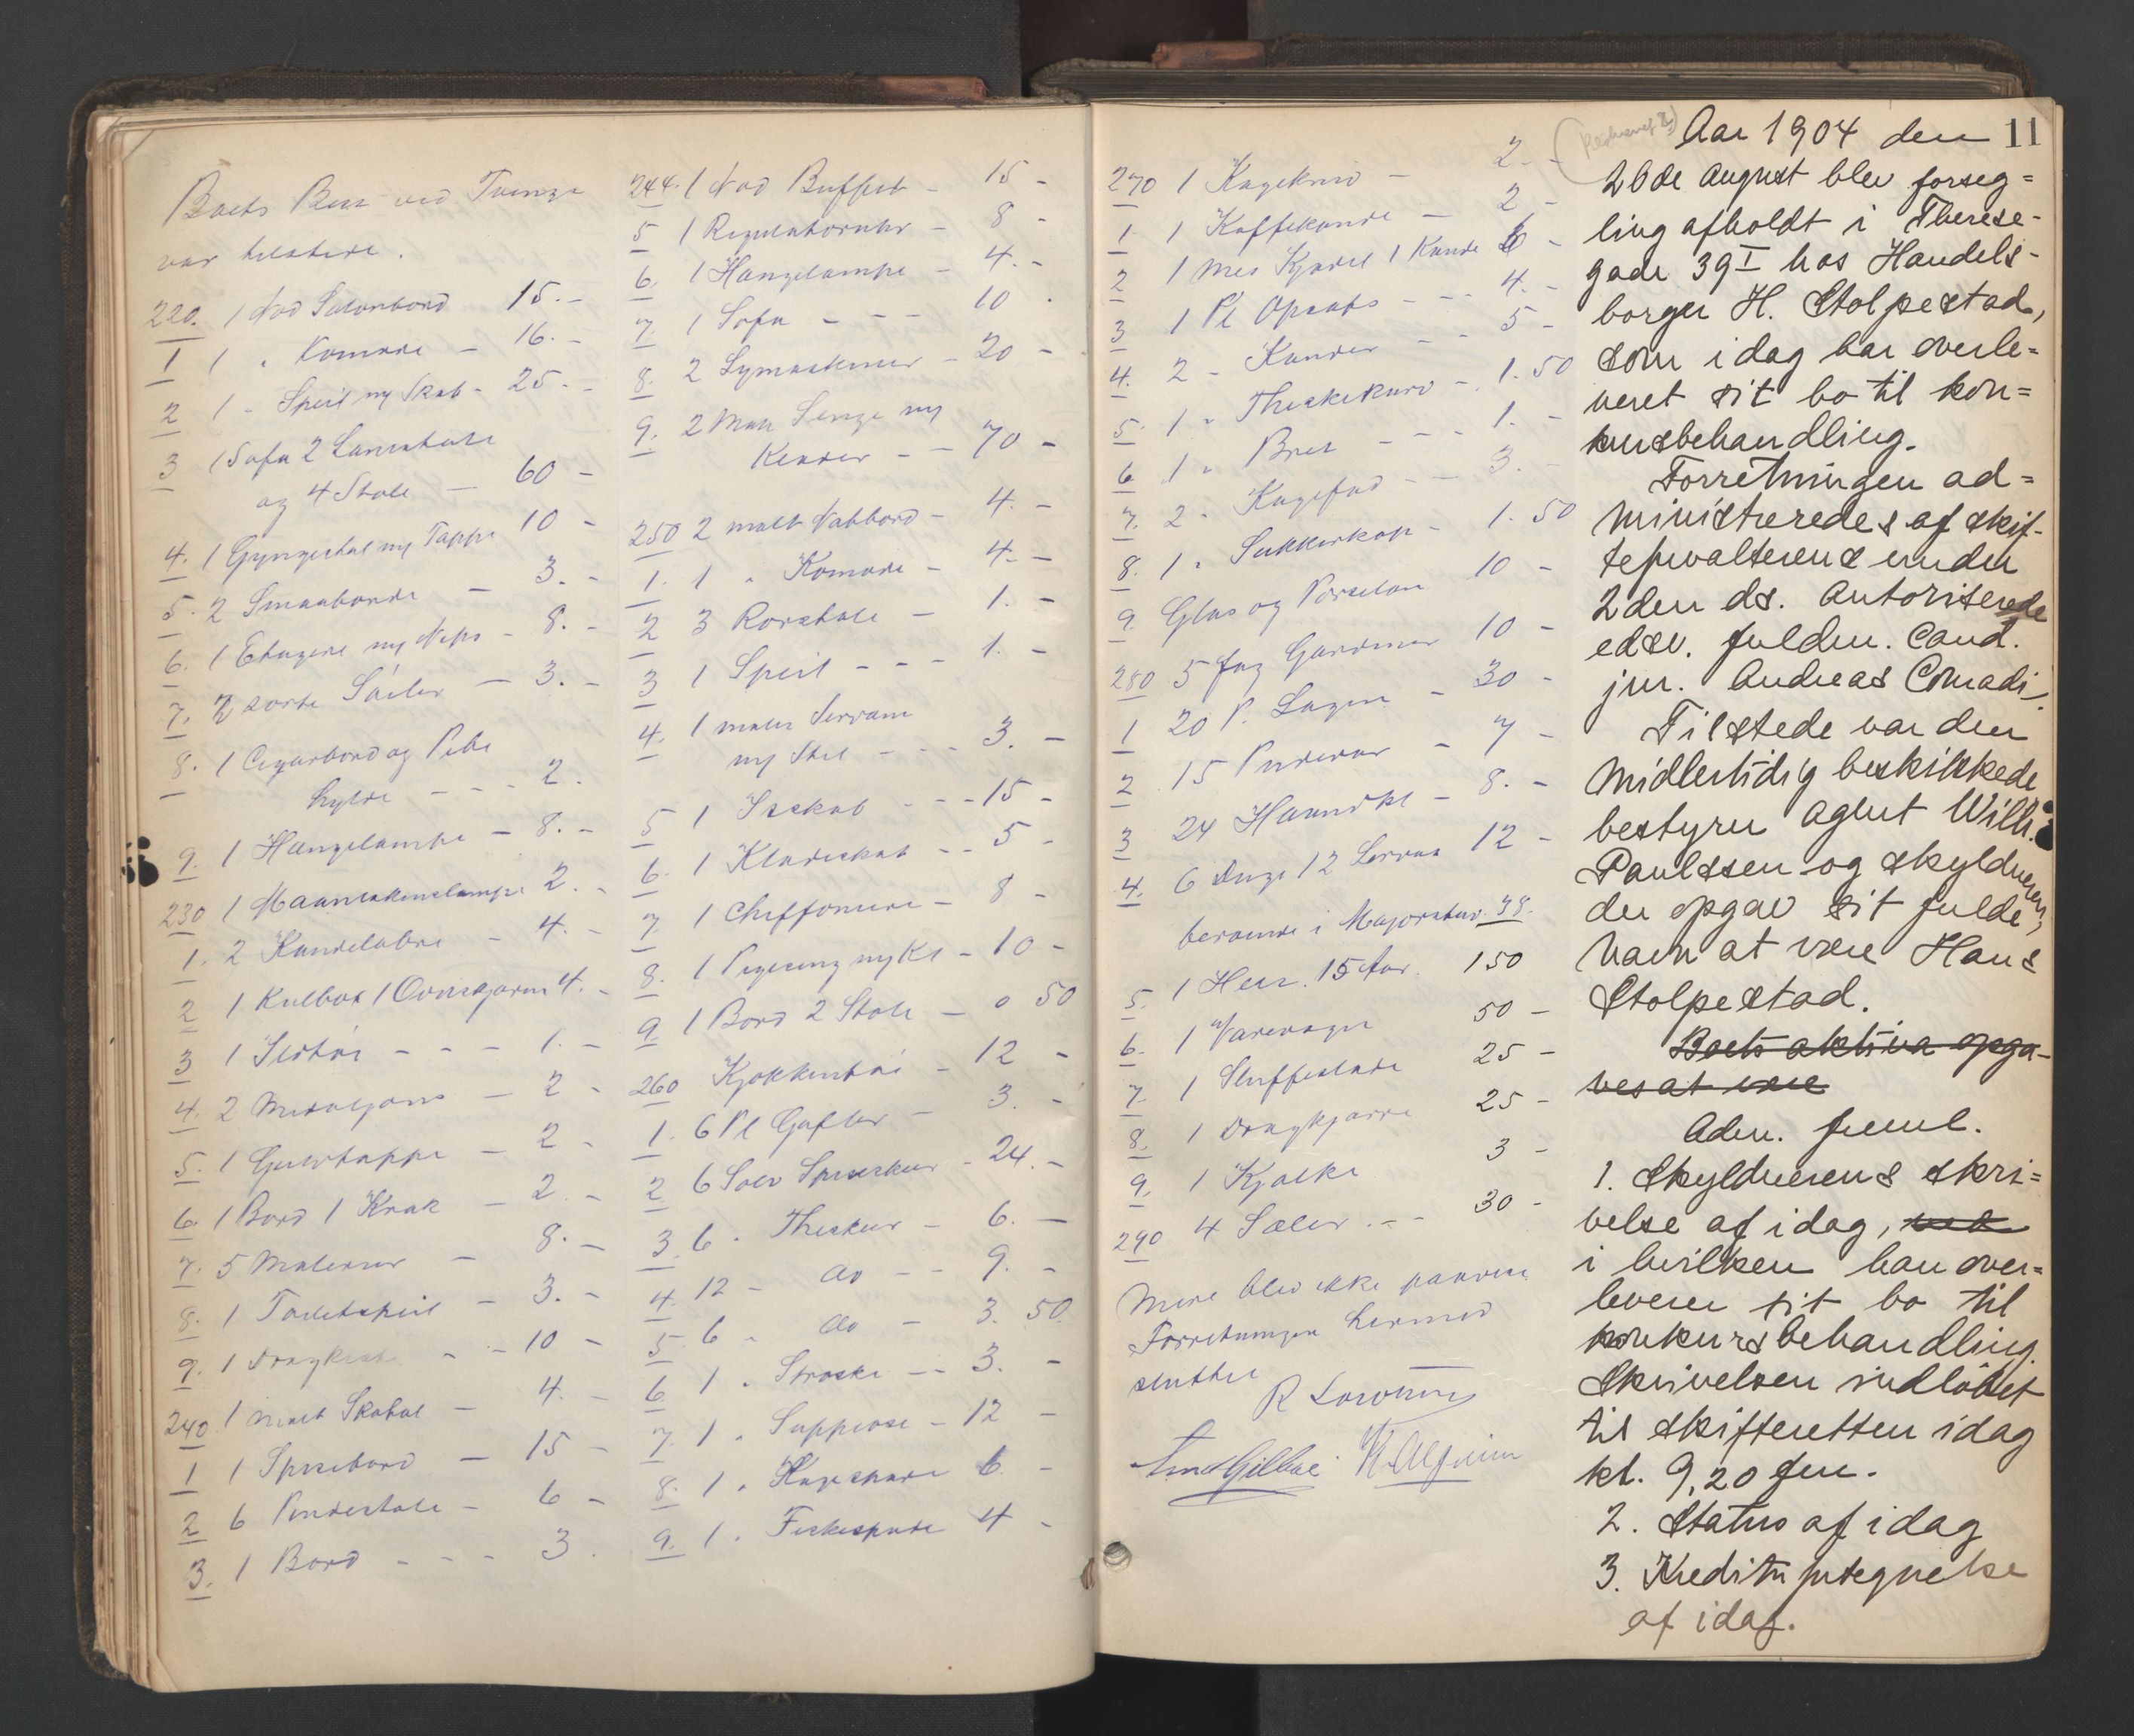 Boets Best ved Tvenge
var tilstede.
220. 1 Nød Salonbord 15.-
1 1 " Komode - 16.-
2 1 - Speil og Skab - 25.-
3 1 Sofa 2 Lænestole
og 4 Stole - 60 -
4. 1 Gyngestol og Tæppe 10 -
5. 2 Smaaborde - 3.-
6. 1 Etagere og Nips - 8.-
7. 2 sorte Söiler - 3.-
8. 1 Cigarbord og Pibe
hylde - - - 2.
9. 1 Hængelampe - 8.-
230 1 Maaneskinslampe 2.-
1. 2 Kandelabre - 4.-
2 1 Kulbox 1 Ovnskjærm 4.-
3 1 Ildtöi - - - 1.-
4. 2 Medaljons - 2 -
5. 1 Gulvtæppe - 2 -
6. 1 Bord 1 Krak - 2.-
7. 5 Malerier - 8.-
8. 1 Toiletspeil - 3.-
9. 1 Dragkiste - - 10 -
240 1 malt Skatol - 4.-
1 1 Spisebord - 15 -
2 6 Pindestole - 6 -
3. 1 Bord - - - 3.
244. 1 Nød Buffet - 15 -
5 1 Regulatoruhr - 8 -
6. 1 Hængelampe - 4.-
7. 1 Sofa - - - 10 .
8. 2 Symaskiner - 20 -
9. 2 Mah Senge og
Klæder - - 70 -
250 2 malt Natbord - 4.-
1. 1 " Komode - 4.-
2 3 Rørstole - 1.-
3 1 Speil - - - 1.-
4. 1 malt Servant
og Stel - - - 3.-
5 1 Isskab - - - 15 -
6. 1 Klædeskab - - 5 -
7. 1 Chiffoniere - 8 -
8. 1 Pigeseng og Kl - 10 -
9. 1 Bord 2 Stole - 0 50
260 Kjøkkentöi - 12 -
1. 6 Pl Gafler - 3.-
2 6 Sølv Spiseskeer - 24.-
3. 6 " Theskeer - 6.-
4. 12 - do - - 9.-
5 6 - do - 3. 50
6 1 " Strøske - - 3.-
7. 1 " Suppeøse - 12 -
8. 1 " Kagespade 6 -
9. 1 " Fiskespade 4 -
270 1 Kagekniv - 2.-
1. 1 Kaffekande - 2 -
2 1 Mes Kjedel 1 Kande 6 -
3 1 Pl Opsats - - - 4.-
4. 2 - Kander - - 5 -
5. 1 " Theskekurv - 1. 50
6. 1 " Bret - - - 1.-
7. 2 " Kagefad - - 3.-
8. 1 " Sukkerkop - 1. 50
9 Glas og Porselæn 10 -
280 5 Fag Gardiner 10 -
1 20 P. Lagen - 30 -
2 15 Pudevar - 7 -
3 24 Haandkl - 8.-
4. 6 Duge 12 Servie 12 -
beroende i Majorstuv. 38.
5. 1 Hest. 15 Aar. 150
6. 1 Varevogn 50 -
7. 1 Sluffeslæde 25 -
8. 1 Dragkjærre 25 -
9. 1 Kjælke 3 -
290 4 Sæler - - - 30 -
Mere blev ikke
Forretningen hermed
sluttet
Aar 1904 den 11
26de August blev forseg=
ling afholdt i Therese-
gade 39I hos Handels-
borger H. Stolpestad,
som idag har overle=
veret sit bo til kon=
kursbehandling.
Forretningen ad=
ministreredes af skif-
teforvalterens under
2den ds. autoriserede
edsv. fuldm. Cand.
jur. Andreas Conradi.
Tilstede var den
midlertidig beskikkede
bestyrer agent Wilh.
Paulssen og skyldneren,
der opgav sit fulde
navn at være Hans
Stolpestad.
Boets aktiva opga-
ves at være
Adm. freml.
1. Skyldnerens skri=
velse af idag, ved
i hvilken han over=
leverer sit bo til
konkursbehandling.
Skrivelsen indløbet
til skifteretten idag
kl. 9,20 fm.
2. Status af idag
3. Kreditorfortegnelse
af idag.